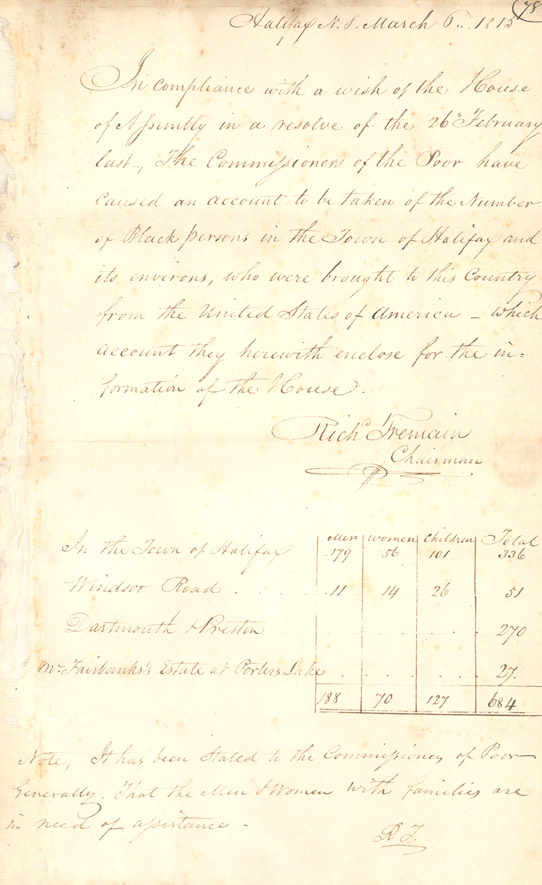 78
Halifax N.S. March 6.. 1815
In compliance with a wish of the House
of Assembly in a resolve of the 26th February
last, The Commissioners of the Poor have
caused an account to be taken of the Number
of Black persons in the Town of Halifax and
its environs, who were brought to this Country
from the United States of America – which
account they herewith enclose for the in=
formation of the House.
Richd Tremain
Chairman
Men women Children Total
In the Town of Halifax 179 56 101 336
Windsor Road . . . . 11 14 26 51
Dartmouth & Preston . . . . . . 270
Mr Fairbanks's Estate at Porters Lake . . . . . . 27.
188 70 127 684
Note, It has been Stated to the Commissioners of Poor
Generally, That the Men & Women with families are
in need of assistance –
R T.